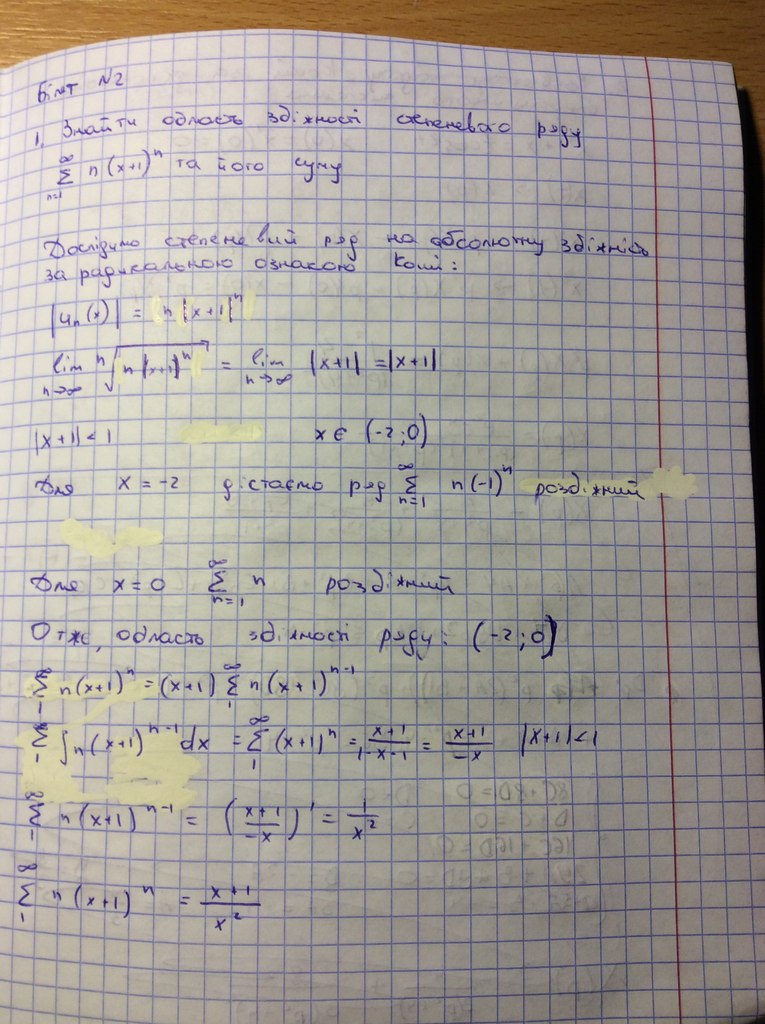 Білет №2
1. Знайти область збіжності степеневого ряду
∑_{n=1}^{∞} n(x+1)^n та його суму
Дослідимо степеневий ряд на абсолютну збіжність
за радикальною ознакою Коші:
|u_n(x)| = n|x+1|^n
lim_{n→∞} ⁿ√(n|x+1|^n) = lim_{n→∞} |x+1| = |x+1|
|x+1| < 1 x ∈ (-2; 0)
Для x = -2 дістаємо ряд ∑_{n=1}^{∞} n(-1)^n розбіжний
Для x = 0 ∑_{n=1}^{∞} n розбіжний
Отже, область збіжності ряду: (-2; 0)
∑_{1}^{∞} n(x+1)^n = (x+1) ∑_{1}^{∞} n(x+1)^{n-1}
∑_{1}^{∞} ∫n(x+1)^{n-1}dx = ∑_{1}^{∞} (x+1)^n = (x+1)/(1-x-1) = (x+1)/(-x) |x+1| < 1
∑_{1}^{∞} n(x+1)^{n-1} = ((x+1)/(-x))' = 1/x²
∑_{1}^{∞} n(x+1)^n = (x+1)/x²